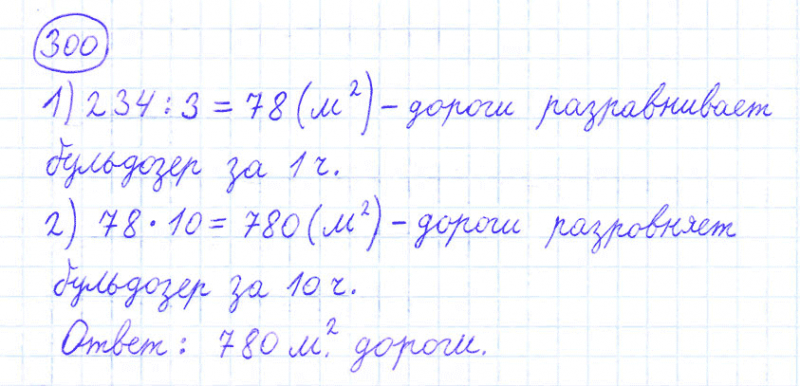 300
1) 234 : 3 = 78 (м²) – дороги разравнивает
бульдозер за 1 ч.
2) 78 · 10 = 780 (м²) – дороги разровняет
бульдозер за 10 ч.
Ответ: 780 м². дороги.